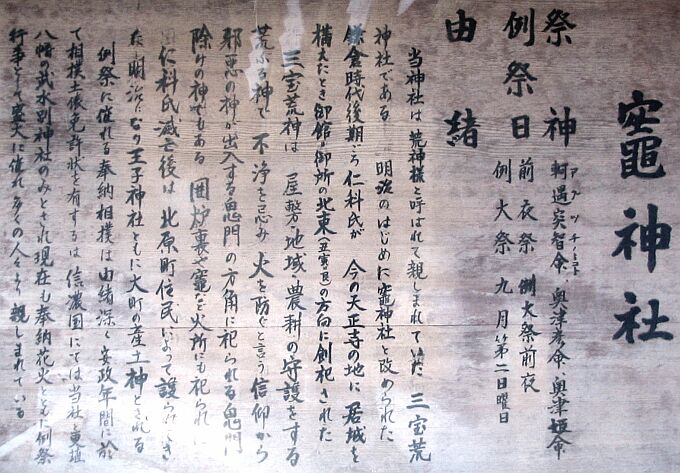 竈神社
祭神 軻遇突智命、奥津彦命、奥津姫命
アグツチノミコト
例祭日 前夜祭 例大祭前夜
例大祭 九月第二日曜日
由緒
当神社は荒神様と呼ばれて親しまれていた 三宝荒
神社である 明治のはじめに竈神社と改められた
鎌倉時代後期ごろ仁科氏が 今の天正寺の地に 居城を
構えたとき御館・御所の北東(丑寅の艮)の方向に創祀された
三宝荒神は 屋敷・地域・農耕の守護をする
荒ぶる神で 不浄を忌み 火を防ぐと言う信仰から
邪悪の神が出入する鬼門の方角に祀られる鬼門
除けの神でもある 囲炉裏や竈など火所にも祀られた
仁科氏滅亡後は 北原町住民によって護られてき
た 明治になり王子神社とともに大町の産土神とされる
例祭に催れる奉納相撲は 由緒深く安政年間に於
て相撲土俵免許状を有するは 信濃国にては当社と更埴
八幡の武水別神社のみとされ現在も奉納花火とともに例祭
行事として盛大に催れ 多くの人々より親しまれている